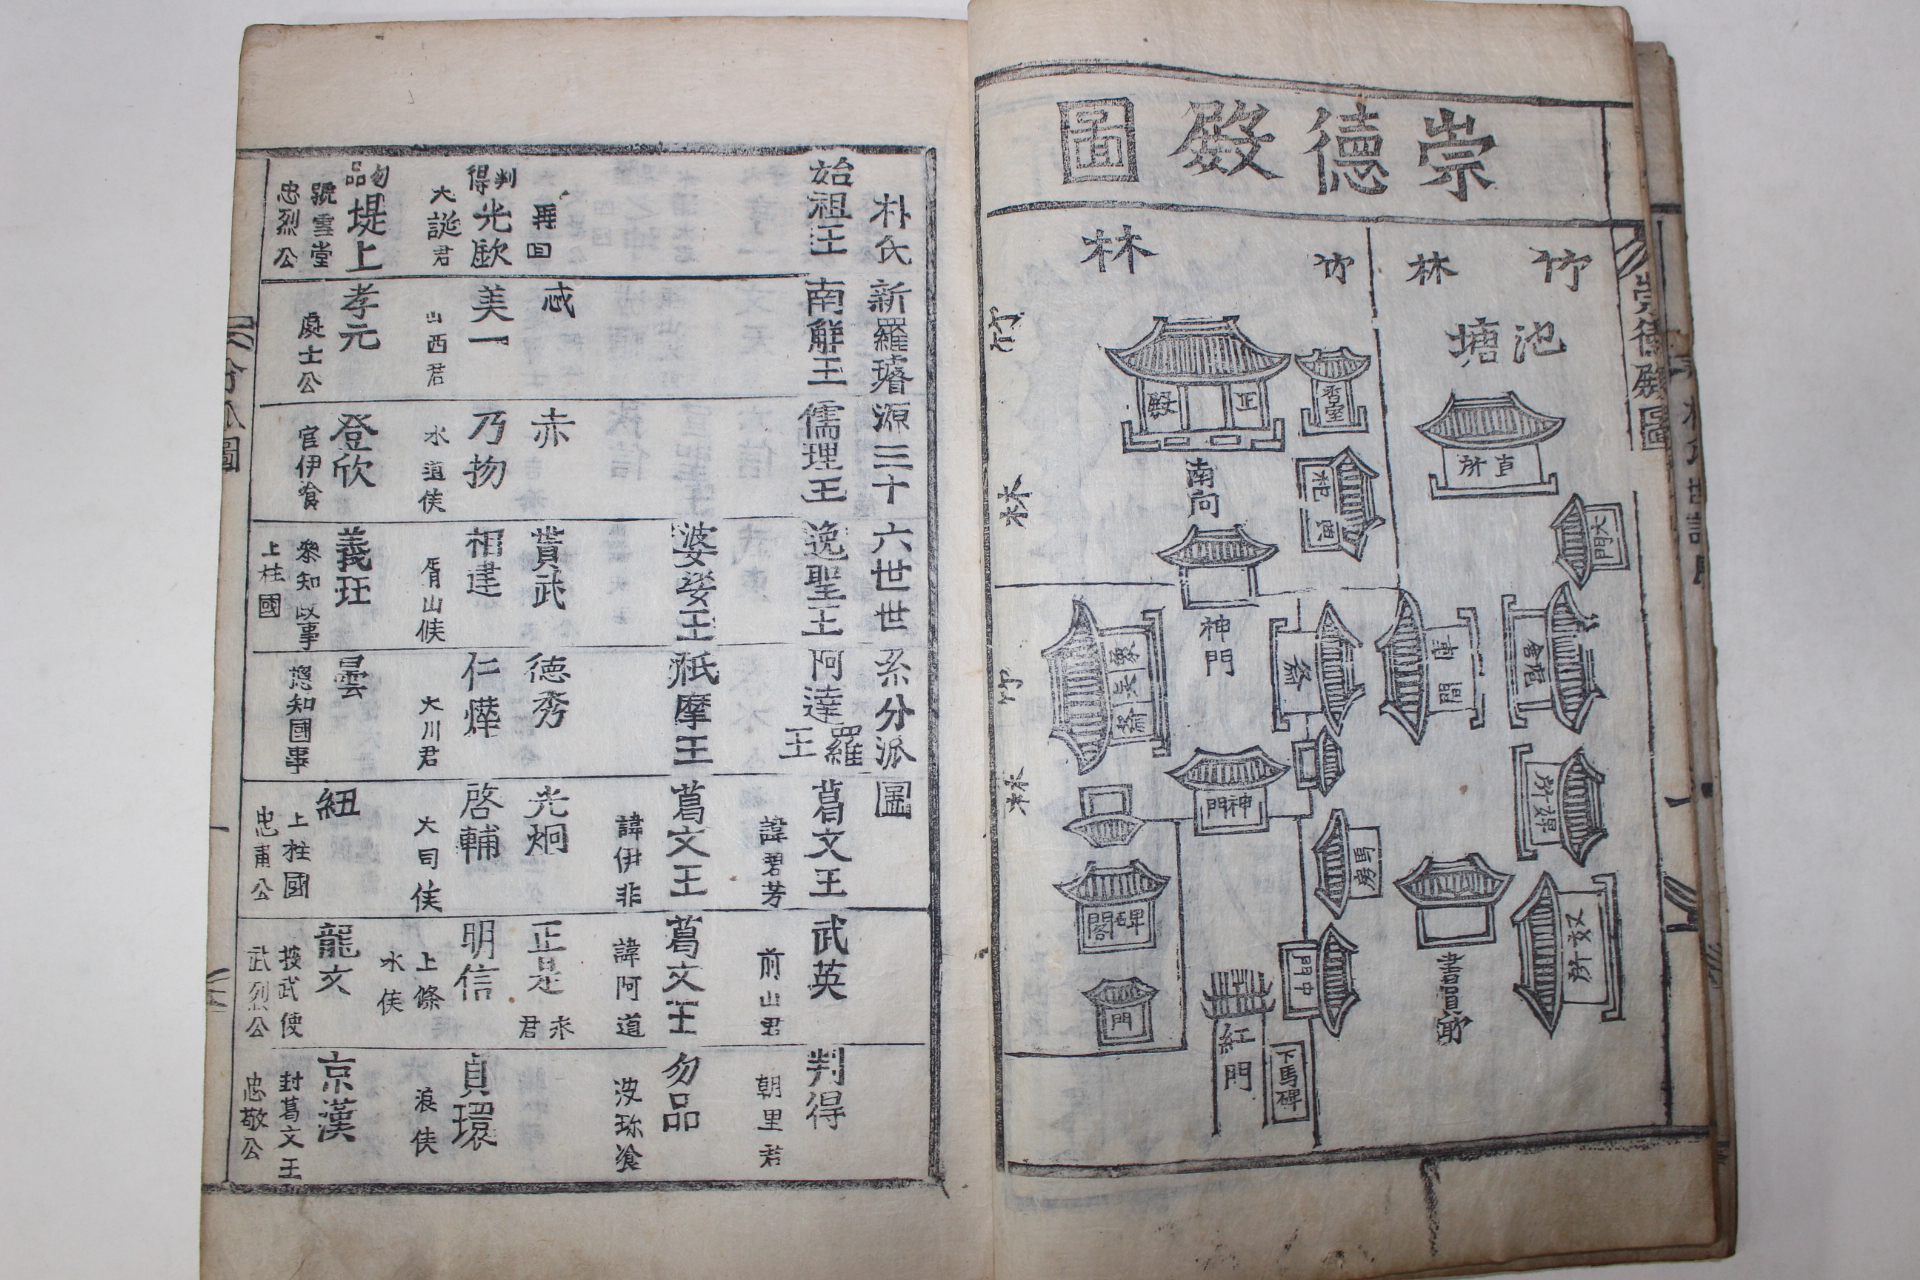 崇德殿圖
竹林
竹林
池塘
直所
大門
香室
正殿
南向
神門
庫間
會館
神門
馬房
碑閣
門
中門
紅門
下馬碑
奴所
竹
林
竹
林
崇德殿圖
朴氏新羅璿源三十六世世系分派圖
始祖王
南解王
儒理王
逸聖王
阿達羅王
葛文王 諱碧芳
武英 前山君
判得 朝里君
婆娑王
祇摩王
葛文王 諱伊非
葛文王 諱阿道
勿品 波珍飡
再回
忒
赤
賁武
德秀
光炯
正是
判得
光歐 大誕君
美一 山西君
乃物 水道侯
相建 屑山候
仁燁 大川君
啓輔 大司侯
明信 上條水侯
貞環 浪侯
勿品
堤上 號雪堂 忠烈公
孝元 處士公
登欣 官伊飡
義玨 叅知政事 上柱國
曇 摠知國事
紐 上柱國 忠甫公
龍文 按武使 武烈公
京漢 封葛文王 忠敬公
分派圖